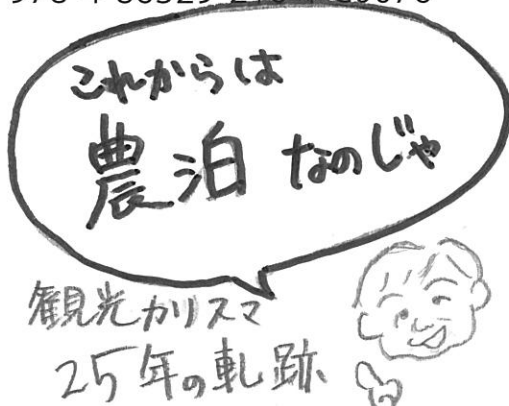 これからは
農泊なのじゃ
観光カリスマ
25年の軌跡